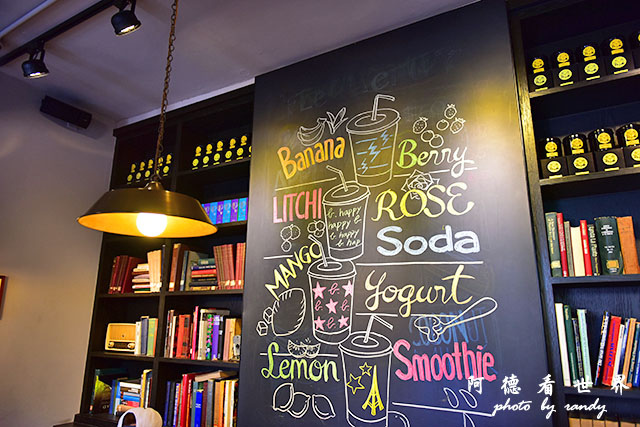 Banana
Berry
LITCHI
b. happy
happy b.
b. happy
happy b.
b. hap
ROSE
Soda
MANGO
Yogurt
Lemon
COCONUT
Smoothie
阿德看世界
photo by randy